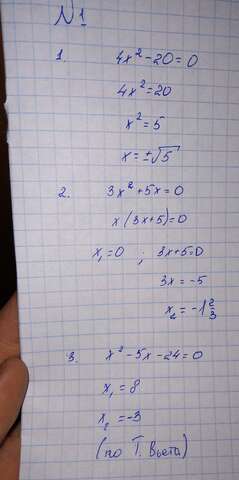 №1
1. 4x² - 20 = 0
4x² = 20
x² = 5
x = ±√5
2. 3x² + 5x = 0
x(3x + 5) = 0
x₁ = 0 ; 3x + 5 = 0
3x = -5
x₂ = -1 2/3
3. x² - 5x - 24 = 0
x₁ = 8
x₂ = -3
(по Т. Виета)